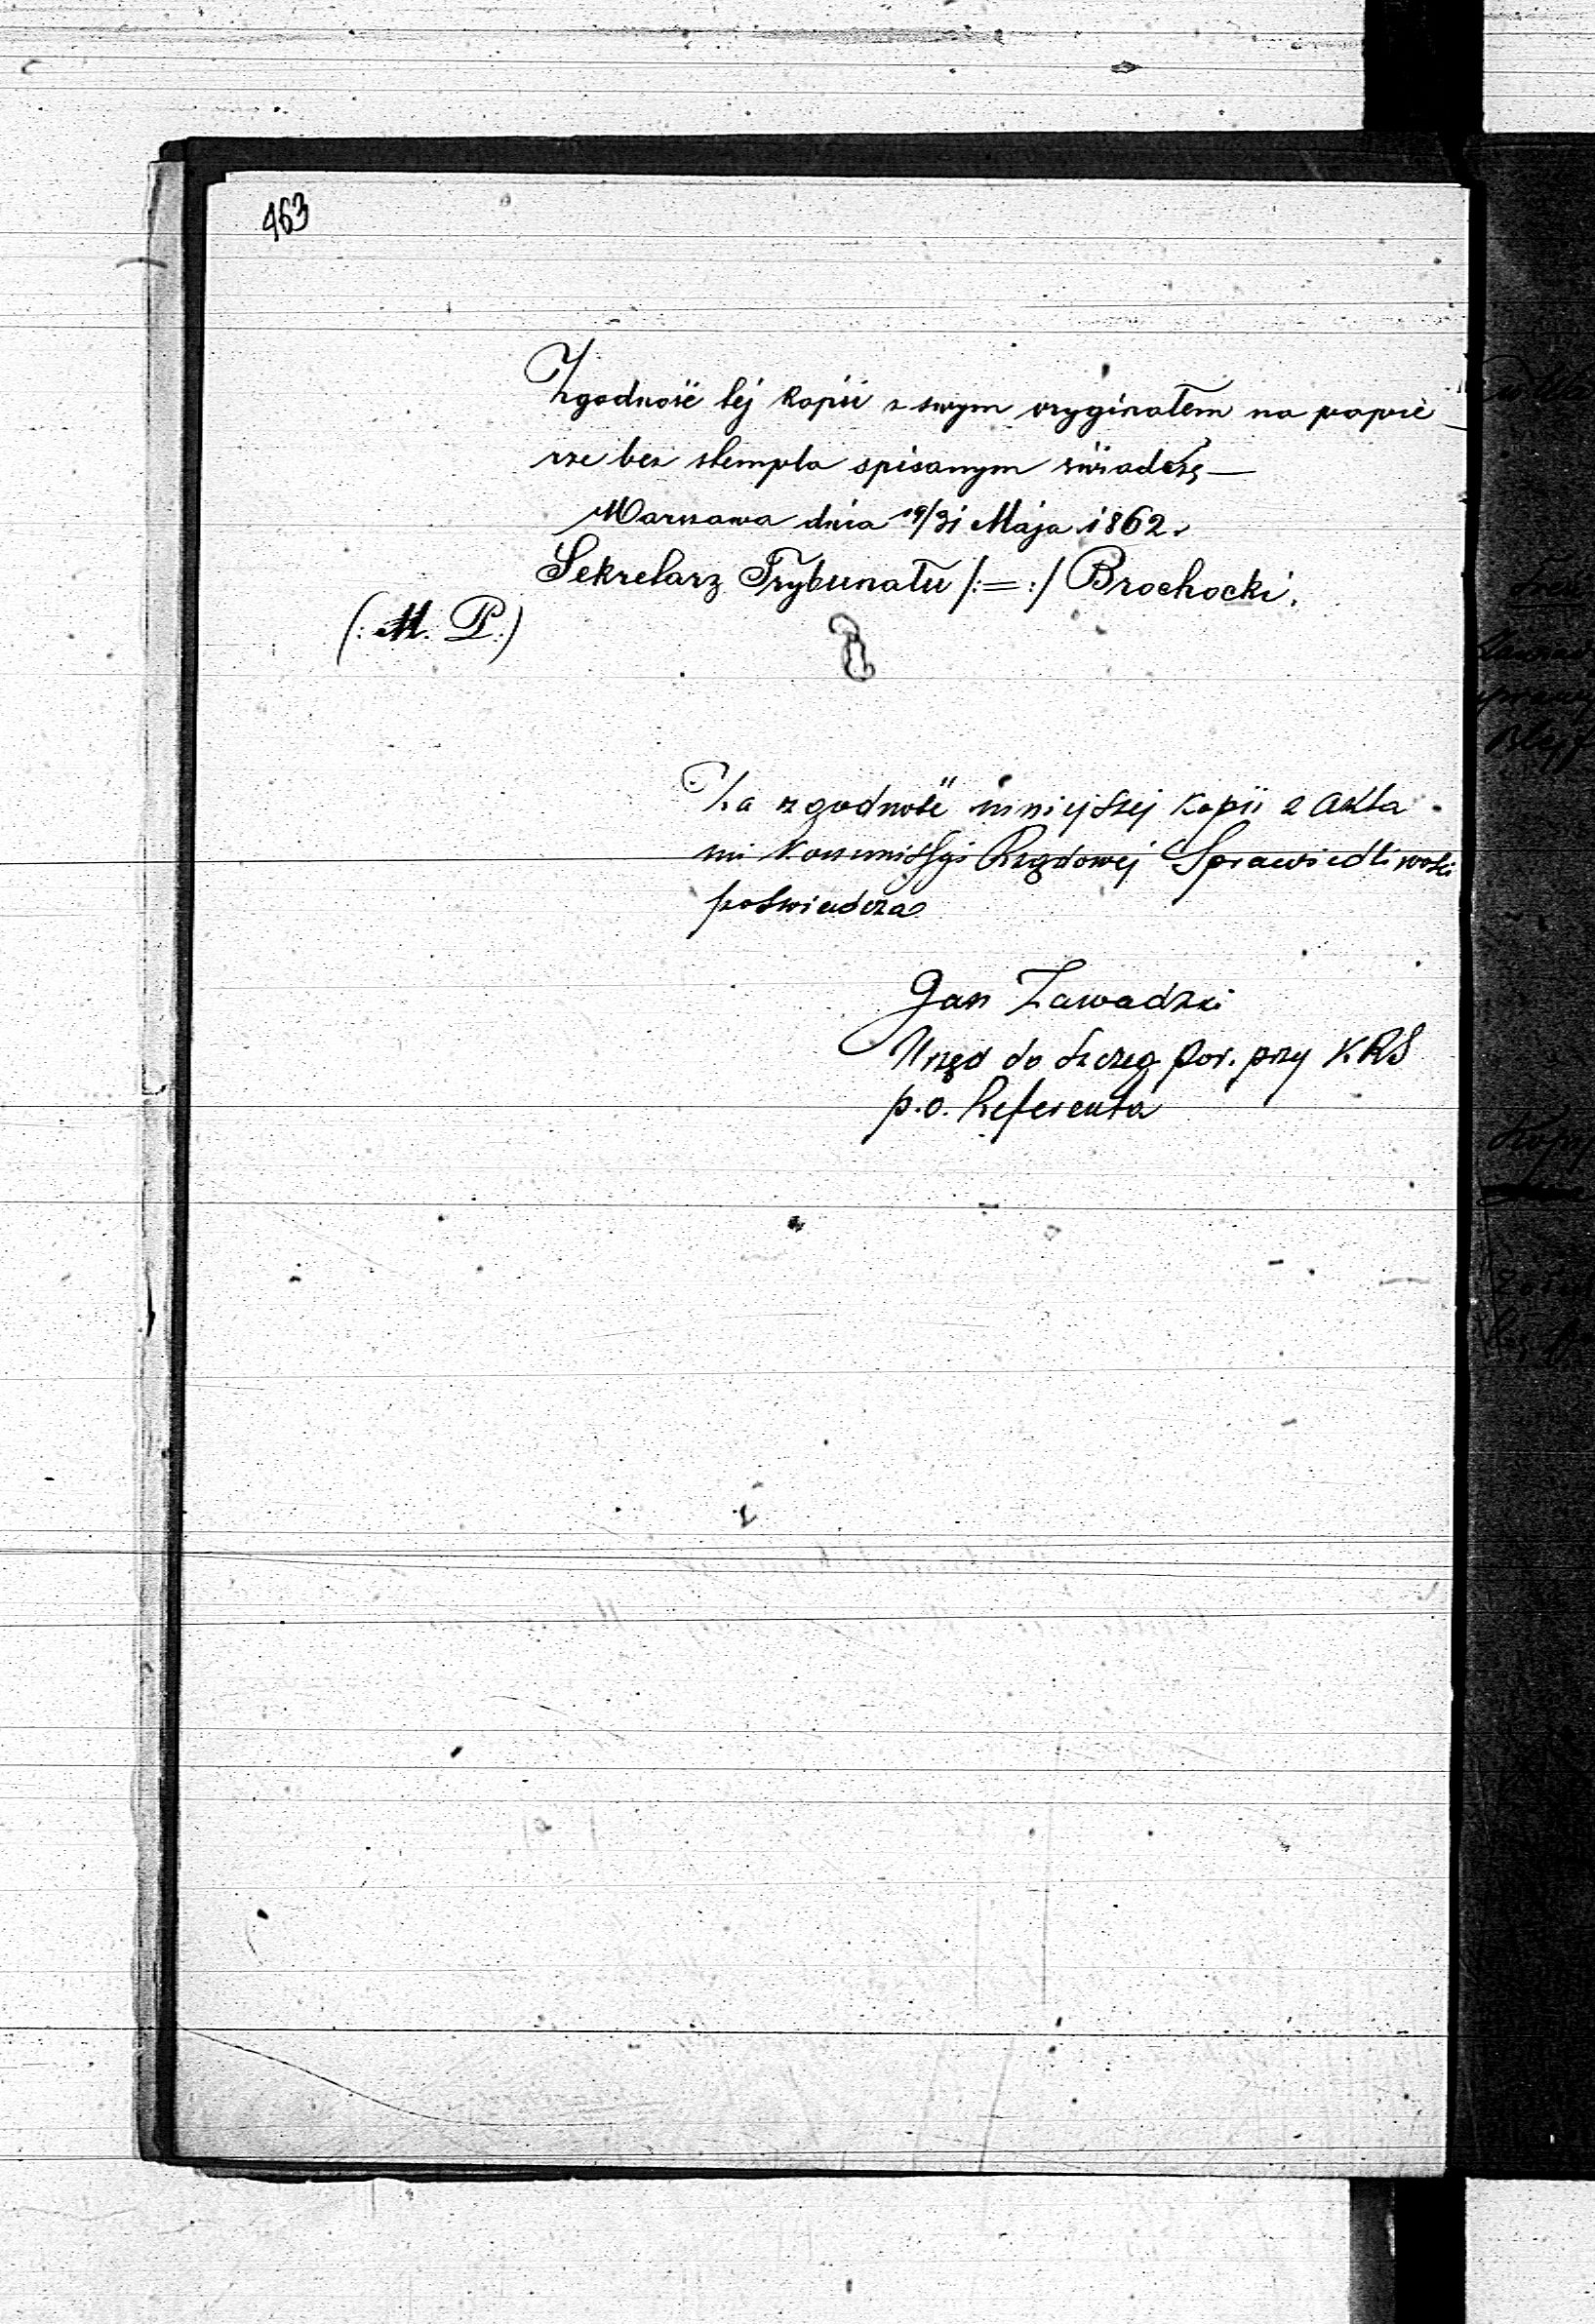 463
Zgodność téj kopii z swym oryginałem na papie
rze bez stempla spisanym świadczę —
Warszawa dnia 19/31 Maja 1862.
Sekretarz Trybunału /:=:/ Brochocki.
(: M. P. :)
Za zgodność niniejszej kopii z Akta
mi Kommissyi Rządowej Sprawiedliwości
poświadcza
Jan Zawadzki
Urzęd do szczeg por. przy KRS
p.o. Referenta